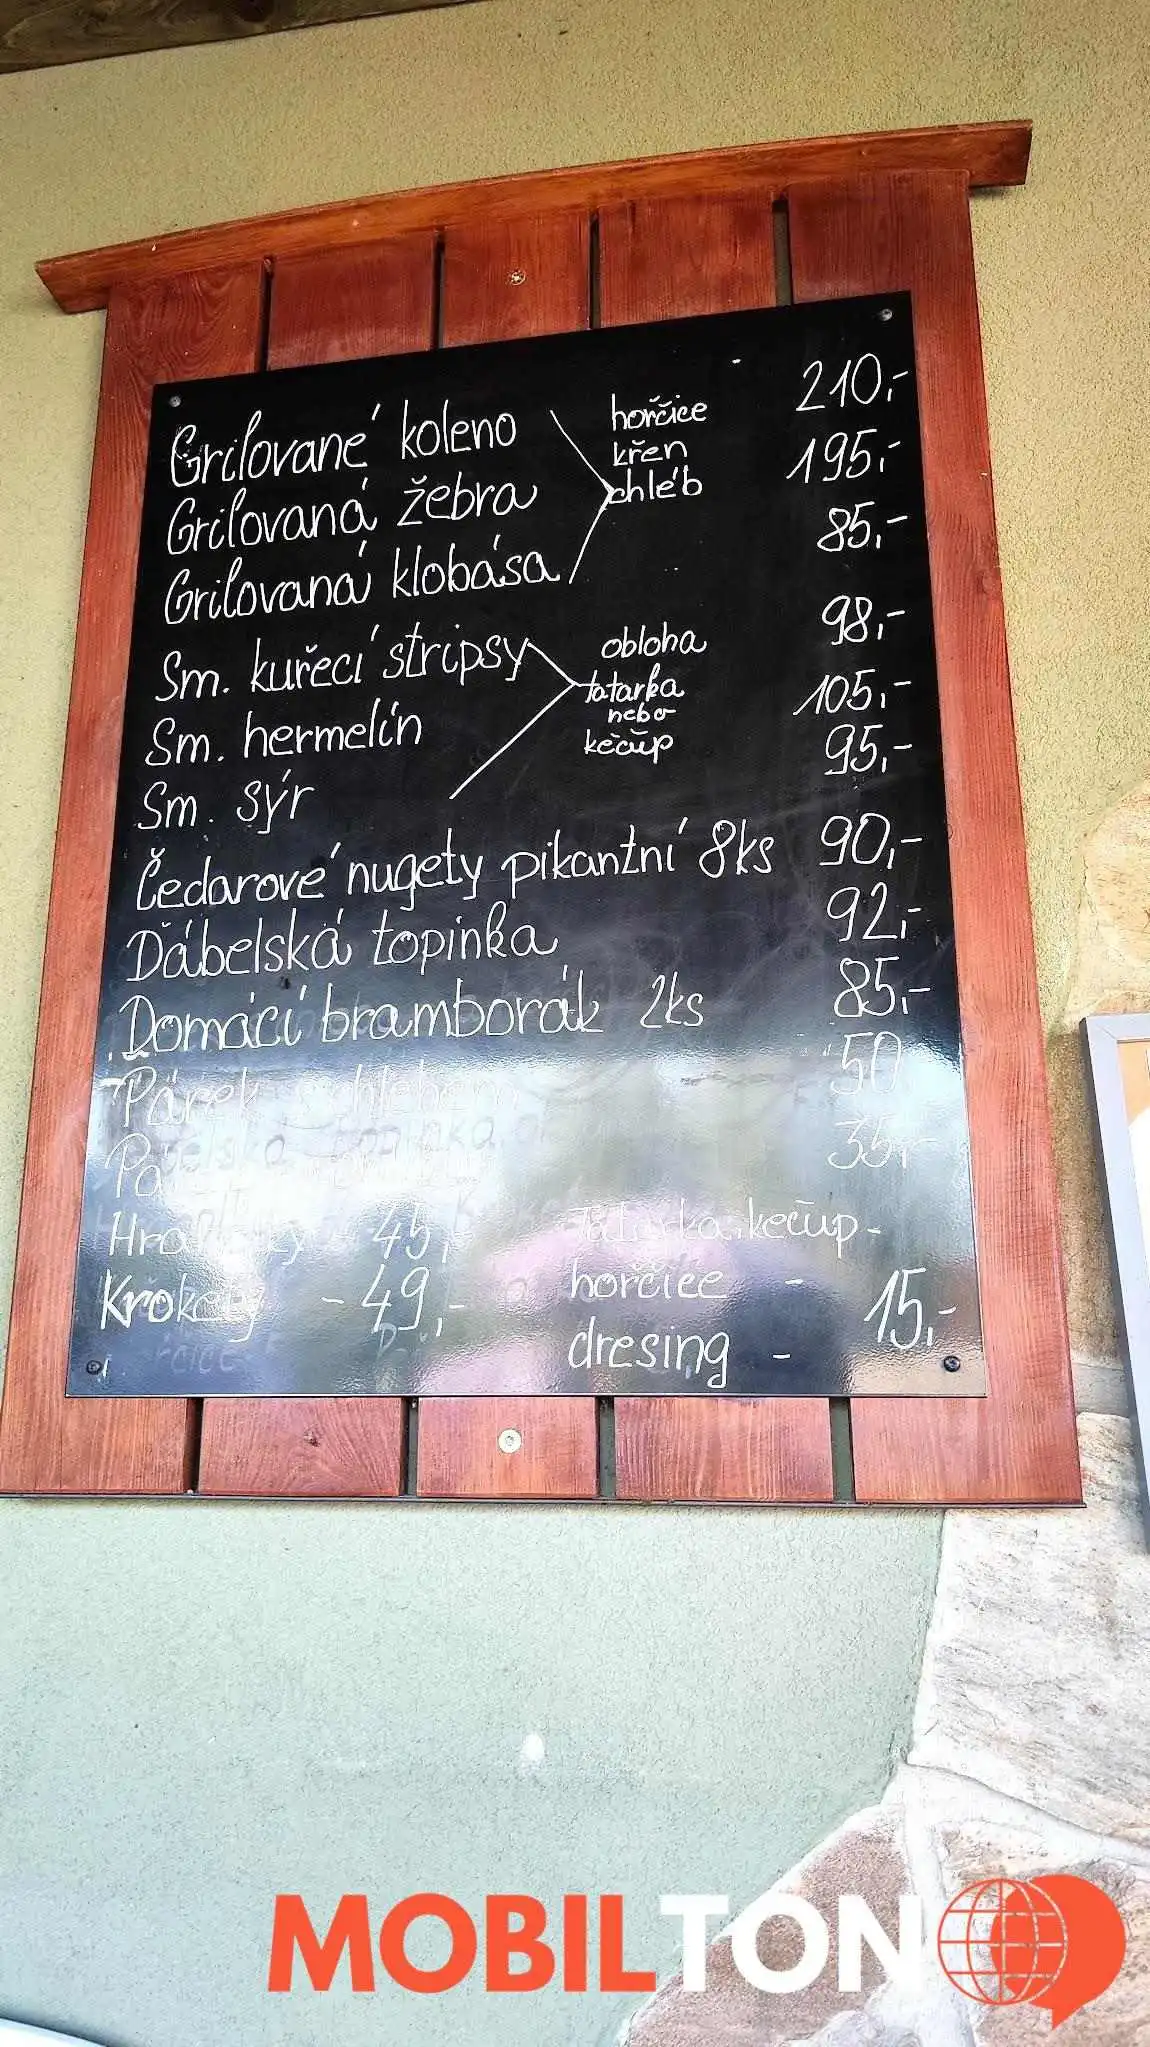 Grilované koleno 210,-
Grilovaná žebra 195,-
Grilovaná klobása 85,-
hořčice
křen
chléb
Sm. kuřecí stripsy 98,-
Sm. hermelín 105,-
Sm. sýr 95,-
obloha
tatarka
nebo
kečup
Čedarové nugety pikantní 8ks 90,-
Ďábelská topinka 92,-
Domácí bramborák 2ks 85,-
Párek s chlebem 50
35,-
Hranolky - 45,-
Krokety - 49,-
Tatarka, kečup -
hořčice -
dresing - 15,-
MOBILTON